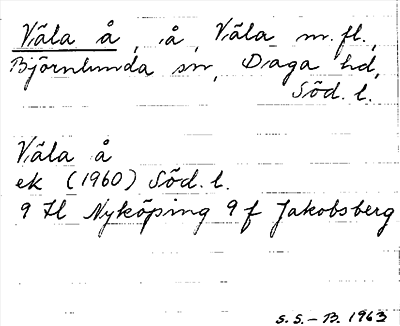 Väla å, å, Väla m.fl.,
Björnlunda sn, Daga hd,
Söd. l.
Väla å
ek (1960) Söd. l.
9 H Nyköping 9 f Jakobsberg
S.S.-B. 1963